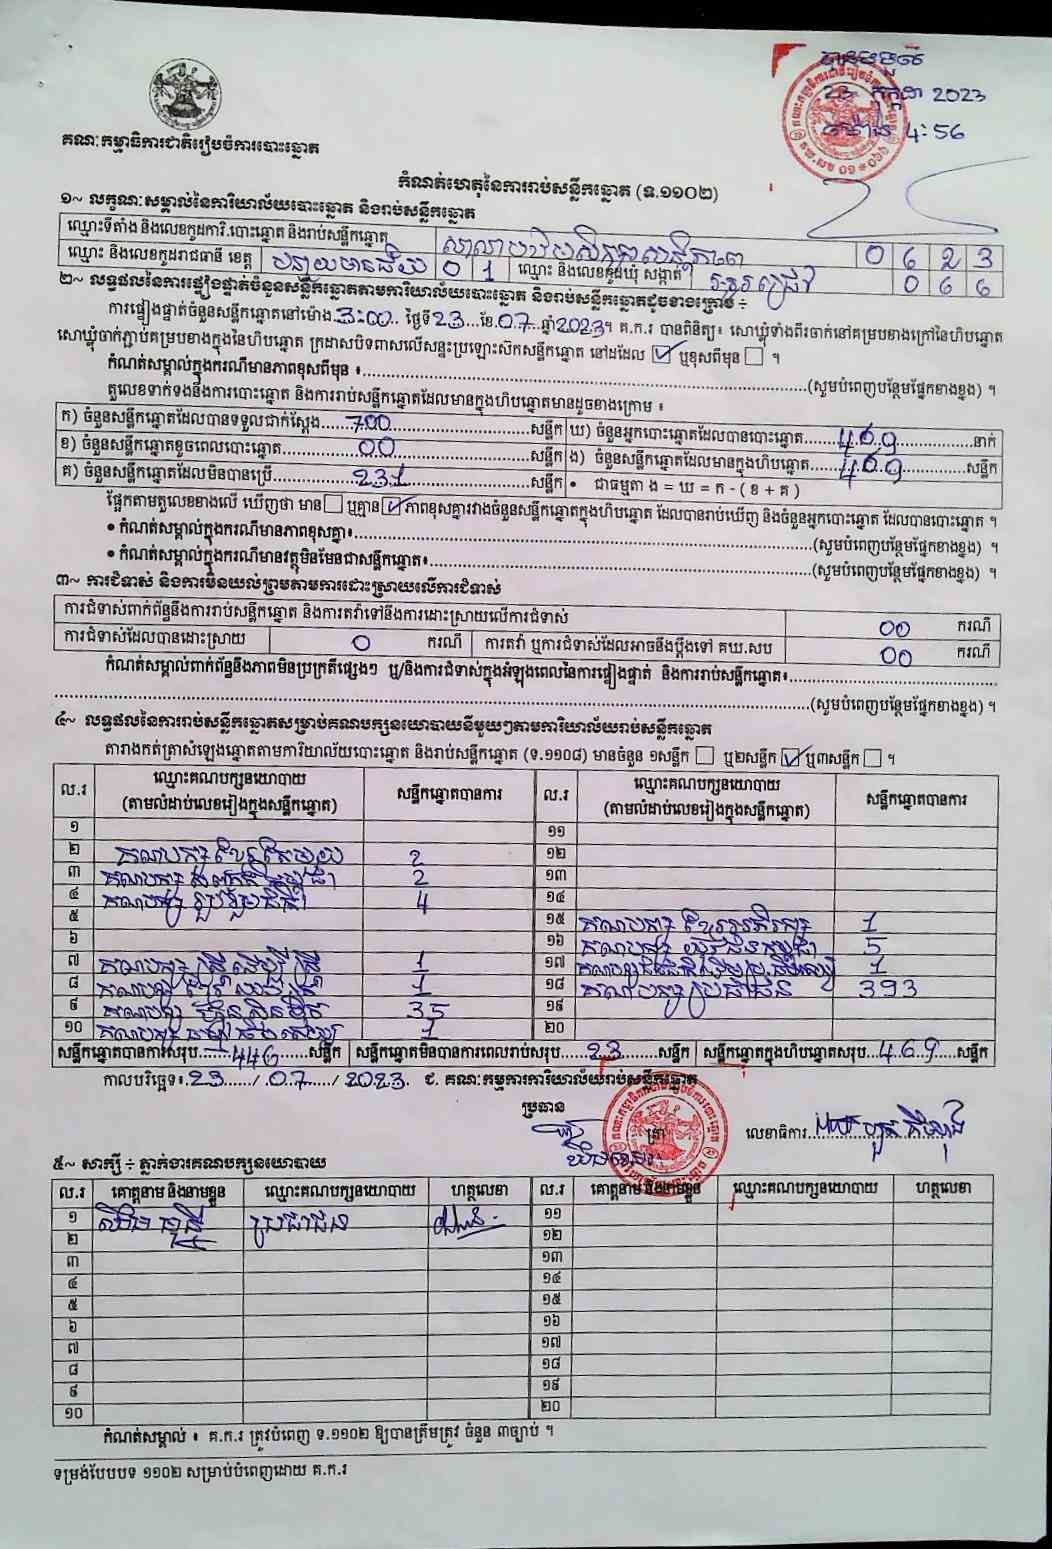 បានទទួល
23 កក្កដា 2023
ម៉ោង 4:56
គណៈកម្មាធិការជាតិរៀបចំការបោះឆ្នោត
កំណត់ហេតុនៃការរាប់សន្លឹកឆ្នោត (ទ.១១០២)
១~ លក្ខណៈសម្គាល់នៃការិយាល័យបោះឆ្នោត និងរាប់សន្លឹកឆ្នោត
ឈ្មោះទីតាំង និងលេខកូដការិ.បោះឆ្នោត និងរាប់សន្លឹកឆ្នោត 0 6 2 3
ឈ្មោះ និងលេខកូដរាជធានី ខេត្ត បន្ទាយមានជ័យ 0 1 ឈ្មោះ និងលេខកូដឃុំ សង្កាត់ 0 6 6
២~ លទ្ធផលនៃការផ្ទៀងផ្ទាត់ចំនួនសន្លឹកឆ្នោតតាមការិយាល័យបោះឆ្នោត និងរាប់សន្លឹកឆ្នោតដូចខាងក្រោម ÷
ការផ្ទៀងផ្ទាត់ចំនួនសន្លឹកឆ្នោតនៅម៉ោង 3:00 ថ្ងៃទី 23 ខែ 07 ឆ្នាំ 2023។ គ.ក.រ បានពិនិត្យ៖ សោឃ្លុំទាំងពីរចាក់នៅគម្របខាងក្រៅនៃហិបឆ្នោត
សោឃ្លុំចាក់ភ្ជាប់គម្របខាងក្នុងនៃហិបឆ្នោត ក្រដាសបិទពាសលើសន្ទះប្រឡោះស៊កសន្លឹកឆ្នោត នៅដដែល ☑ ឬខុសពីមុន ☐ ។
កំណត់សម្គាល់ក្នុងករណីមានភាពខុសពីមុន ៖ (សូមបំពេញបន្ថែមផ្នែកខាងខ្នង) ។
តួលេខទាក់ទងនឹងការបោះឆ្នោត និងការរាប់សន្លឹកឆ្នោតដែលមានក្នុងហិបឆ្នោតមានដូចខាងក្រោម ៖
ក) ចំនួនសន្លឹកឆ្នោតដែលបានទទួលជាក់ស្តែង 700 សន្លឹក ឃ) ចំនួនអ្នកបោះឆ្នោតដែលបានបោះឆ្នោត 469 នាក់
ខ) ចំនួនសន្លឹកឆ្នោតខូចពេលបោះឆ្នោត 00 សន្លឹក ង) ចំនួនសន្លឹកឆ្នោតដែលមានក្នុងហិបឆ្នោត 469 សន្លឹក
គ) ចំនួនសន្លឹកឆ្នោតដែលមិនបានប្រើ 231 សន្លឹក • ជាធម្មតា ង = ឃ = ក - ( ខ + គ )
ផ្អែកតាមតួលេខខាងលើ ឃើញថា មាន ☐ ឬគ្មាន ☑ ភាពខុសគ្នារវាងចំនួនសន្លឹកឆ្នោតក្នុងហិបឆ្នោត ដែលបានរាប់ឃើញ និងចំនួនអ្នកបោះឆ្នោត ដែលបានបោះឆ្នោត ។
• កំណត់សម្គាល់ក្នុងករណីមានភាពខុសគ្នា៖ (សូមបំពេញបន្ថែមផ្នែកខាងខ្នង) ។
• កំណត់សម្គាល់ក្នុងករណីមានវត្ថុមិនមែនជាសន្លឹកឆ្នោត៖ (សូមបំពេញបន្ថែមផ្នែកខាងខ្នង) ។
៣~ ការជំទាស់ និងការមិនយល់ព្រមតាមការដោះស្រាយលើការជំទាស់
ការជំទាស់ពាក់ព័ន្ធនឹងការរាប់សន្លឹកឆ្នោត និងការតវ៉ាទៅនឹងការដោះស្រាយលើការជំទាស់ 00 ករណី
ការជំទាស់ដែលបានដោះស្រាយ 0 ករណី ការតវ៉ា ឬការជំទាស់ដែលអាចនឹងប្តឹងទៅ គឃ.សប 00 ករណី
កំណត់សម្គាល់ពាក់ព័ន្ធនឹងភាពមិនប្រក្រតីផ្សេងៗ ឬ/និងការជំទាស់ក្នុងអំឡុងពេលនៃការផ្ទៀងផ្ទាត់ និងការរាប់សន្លឹកឆ្នោត៖
(សូមបំពេញបន្ថែមផ្នែកខាងខ្នង) ។
៤~ លទ្ធផលនៃការរាប់សន្លឹកឆ្នោតសម្រាប់គណបក្សនយោបាយនីមួយៗតាមការិយាល័យរាប់សន្លឹកឆ្នោត
តារាងកត់ត្រាសំឡេងឆ្នោតតាមការិយាល័យបោះឆ្នោត និងរាប់សន្លឹកឆ្នោត (ទ.១១០៨) មានចំនួន ១សន្លឹក ☐ ឬ២សន្លឹក ☑ ឬ៣សន្លឹក ☐ ។
ល.រ ឈ្មោះគណបក្សនយោបាយ (តាមលំដាប់លេខរៀងក្នុងសន្លឹកឆ្នោត) សន្លឹកឆ្នោតបានការ ល.រ ឈ្មោះគណបក្សនយោបាយ (តាមលំដាប់លេខរៀងក្នុងសន្លឹកឆ្នោត) សន្លឹកឆ្នោតបានការ
១ ១១
២ គណបក្ស ខ្មែរតែមួយ 2 ១២
៣ គណបក្ស 2 ១៣
៤ គណបក្ស រួបរួមជាតិ 4 ១៤
៥ ១៥ គណបក្ស ខ្មែរអភិរក្ស 1
៦ ១៦ គណបក្ស យុវជនកម្ពុជា 5
៧ គណបក្ស ស្ត្រីដើម្បីស្ត្រី 1 ១៧ គណបក្ស 1
៨ គណបក្ស 1 ១៨ គណបក្ស ប្រជាជន 393
៩ គណបក្ស ហ៊្វុនស៊ិនប៉ិច 35 ១៩
១០ គណបក្ស 1 ២០
សន្លឹកឆ្នោតបានការសរុប 446 សន្លឹក សន្លឹកឆ្នោតមិនបានការពេលរាប់សរុប 23 សន្លឹក សន្លឹកឆ្នោតក្នុងហិបឆ្នោតសរុប 469 សន្លឹក
កាលបរិច្ឆេទ៖ 23 / 07 / 2023 ជ. គណៈកម្មការការិយាល័យរាប់សន្លឹកឆ្នោត
ប្រធាន ត្រា លេខាធិការ
៥~ សាក្សី ÷ ភ្នាក់ងារគណបក្សនយោបាយ
ល.រ គោត្តនាម និងនាមខ្លួន ឈ្មោះគណបក្សនយោបាយ ហត្ថលេខា ល.រ គោត្តនាម និងនាមខ្លួន ឈ្មោះគណបក្សនយោបាយ ហត្ថលេខា
១ ប្រជាជន ១១
២ ១២
៣ ១៣
៤ ១៤
៥ ១៥
៦ ១៦
៧ ១៧
៨ ១៨
៩ ១៩
១០ ២០
កំណត់សម្គាល់ ៖ គ.ក.រ ត្រូវបំពេញ ទ.១១០២ ឱ្យបានត្រឹមត្រូវ ចំនួន ៣ច្បាប់ ។
ទម្រង់បែបបទ ១១០២ សម្រាប់បំពេញដោយ គ.ក.រ